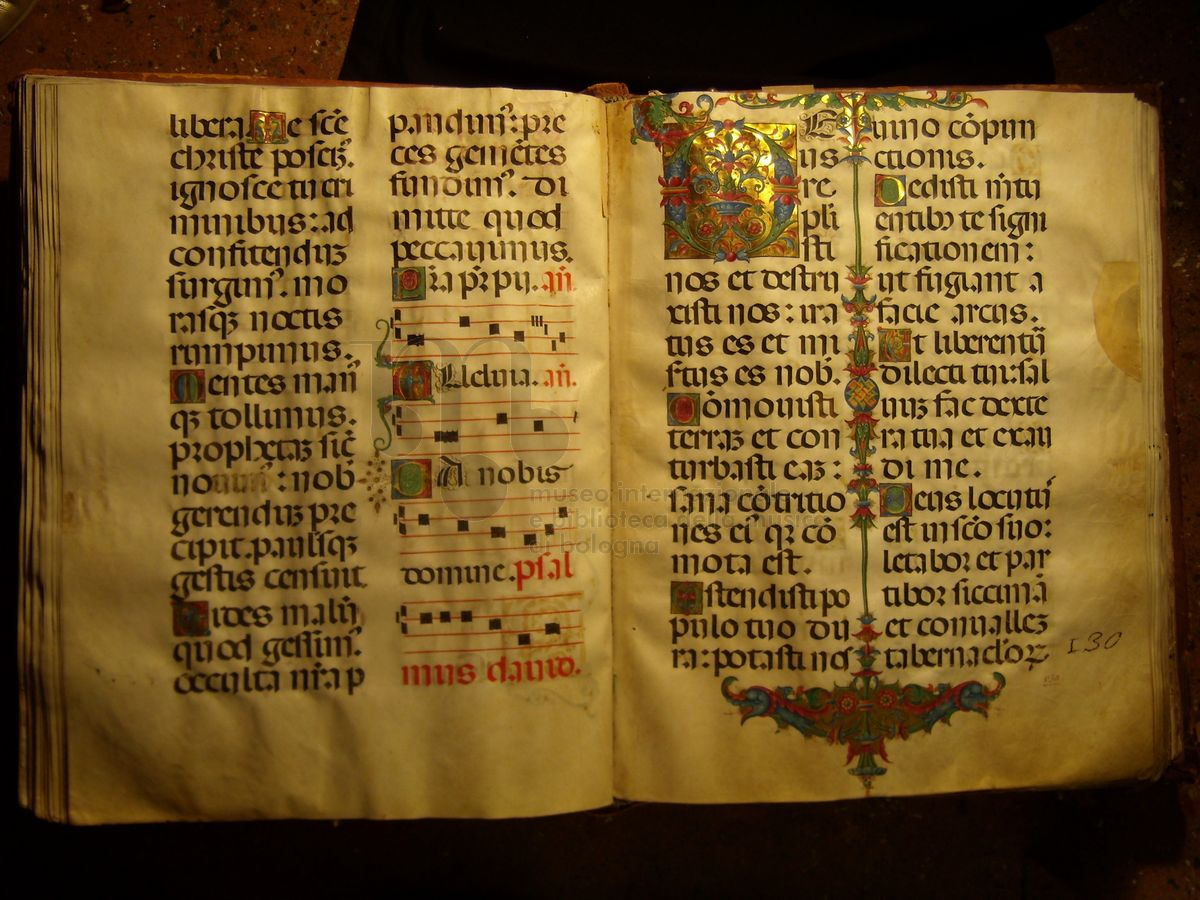 libera. Me sc̄e
christe posciꝫ.
ignosce tu cri
minibus: ad
confitenduꝫ
surgim⁹. mo
rasqꝫ noctis
rumpimus.
Mentes man̄
qꝫ tollimus.
prophetaꝫ sic̄
no : nob
gerenduꝫ pre
cipit. paulsqꝫ
gestis censuit
Uides malū
quod gessim⁹.
occulta nr̄a p
pandim⁹: pre
ces gemētes
fundim⁹. di
mitte quod
peccauimus.
p̄r pij. an̄.
Alleluia. an̄.
Da nobis
domine. psal
mus dauid.
Deus
repulisti
nos et destru
xisti nos: ira
tus es et mi
sertus es nob̄.
Cōmouisti
terraꝫ et con
turbasti eaꝫ:
sana cōtritio
nes ei⁹ qꝛ cō
mota est.
Ostendisti po
pulo tuo du
ra: potasti nos
uino cōpun
ctionis.
Dedisti metu
entibꝫ te signi
ficationem:
ut fugiant a
facie arcus.
Et liberent̄
dilecti tui: sal
uuꝫ fac dexte
ra tua et exau
di me.
Deus locut⁹
est in sc̄o suo:
letabor et par
tibor siccimā
et conualleꝫ
tabernaclōꝝ
130
museo internazionale
e biblioteca della musica
di bologna